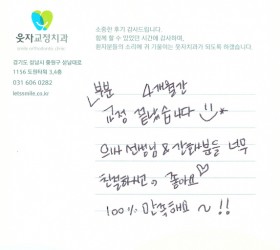 웃자교정치과
www.orthosmile.com
경기도 성남시 중원구 성남대로
1156 도원타워 3,4층
031 606 0282
letsmile.co.kr
소중한 후기 감사드립니다.
함께 할 수 있었던 시간에 감사하며,
환자분들의 소리에 귀 기울이는 웃자치과가 되도록 하겠습니다.
부분 4개월간
교정 끝났습니다
의사 선생님 & 간호사분들 너무
친절하시고 좋아요♡
100% 만족해요~!!